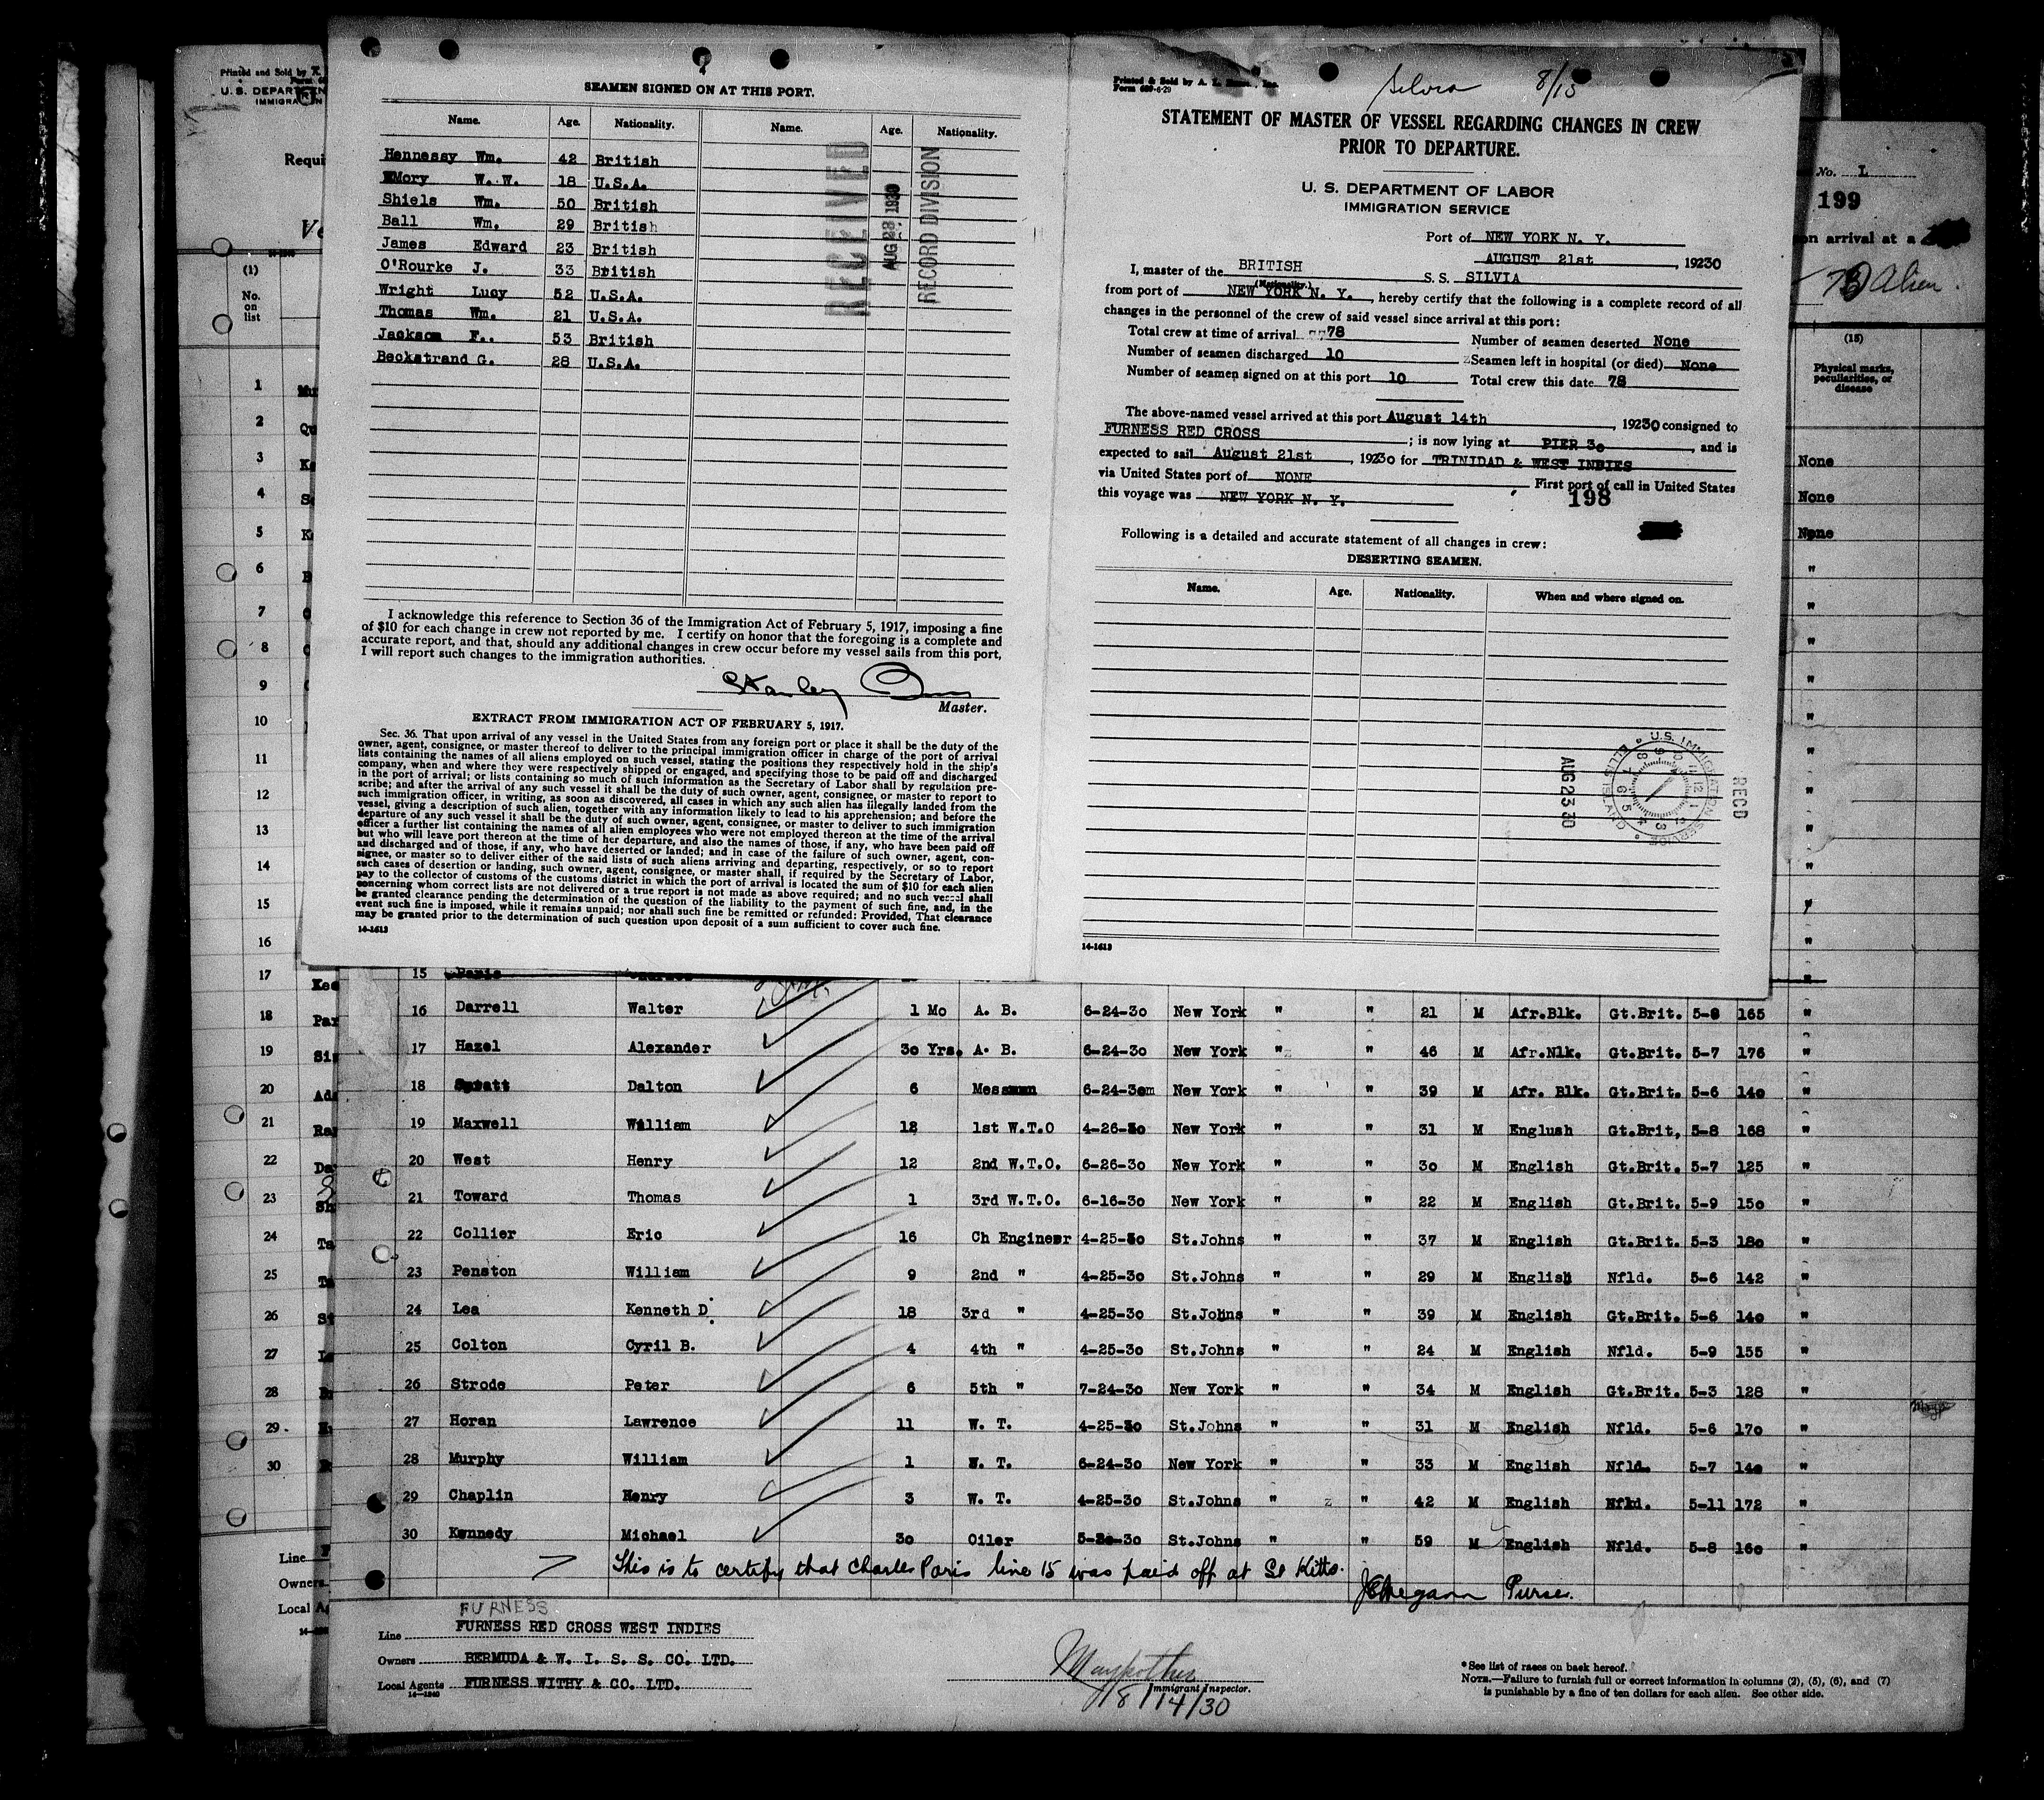 4
SEAMEN SIGNED ON AT THIS PORT.
Name. Age. Nationality. Name. Age. Nationality.
Hennessy Wm. 42 British
Mory W. W. 18 U.S.A.
Shiels Wm. 50 British
Ball Wm. 29 British
James Edward 23 British
O'Rourke J. 33 British
Wright Lucy 52 U.S.A.
Thomas Wm. 21 U.S.A.
Jackson F.. 53 British
Beckstrand G. 28 U.S.A.
RECEIVED
AUG 28 1930
RECORD DIVISION
I acknowledge this reference to Section 36 of the Immigration Act of February 5, 1917, imposing a fine
of $10 for each change in crew not reported by me. I certify on honor that the foregoing is a complete and
accurate report, and that, should any additional changes in crew occur before my vessel sails from this port,
I will report such changes to the immigration authorities.
Stanley
Master.
EXTRACT FROM IMMIGRATION ACT OF FEBRUARY 5, 1917.
Sec. 36. That upon arrival of any vessel in the United States from any foreign port or place it shall be the duty of the
owner, agent, consignee, or master thereof to deliver to the principal immigration officer in charge of the port of arrival
lists containing the names of all aliens employed on such vessel, stating the positions they respectively hold in the ship's
company, when and where they were respectively shipped or engaged, and specifying those to be paid off and discharged
in the port of arrival; or lists containing so much of such information as the Secretary of Labor shall by regulation pre-
scribe; and after the arrival of any such vessel it shall be the duty of such owner, agent, consignee, or master to report to
such immigration officer, in writing, as soon as discovered, all cases in which any such alien has illegally landed from the
vessel, giving a description of such alien, together with any information likely to lead to his apprehension; and before the
departure of any such vessel it shall be the duty of such owner, agent, consignee, or master to deliver to such immigration
officer a further list containing the names of all alien employees who were not employed thereon at the time of the arrival
but who will leave port thereon at the time of her departure, and also the names of those, if any, who have been paid off
and discharged and of those, if any, who have deserted or landed; and in case of the failure of such owner, agent, con-
signee, or master so to deliver either of the said lists of such aliens arriving and departing, respectively, or so to report
such cases of desertion or landing, such owner, agent, consignee, or master shall, if required by the Secretary of Labor,
pay to the collector of customs of the customs district in which the port of arrival is located the sum of $10 for each alien
concerning whom correct lists are not delivered or a true report is not made as above required; and no such vessel shall
be granted clearance pending the determination of the question of the liability to the payment of such fine, and, in the
event such fine is imposed, while it remains unpaid; nor shall such fine be remitted or refunded: Provided, That clearance
may be granted prior to the determination of such question upon deposit of a sum sufficient to cover such fine.
14-1613
Printed & Sold by A.
Form 689-6-29
Silvia 8/15
STATEMENT OF MASTER OF VESSEL REGARDING CHANGES IN CREW
PRIOR TO DEPARTURE.
U. S. DEPARTMENT OF LABOR
IMMIGRATION SERVICE
Port of NEW YORK N. Y.
AUGUST 21st, 19230
I, master of the BRITISH S. S. SILVIA
(Nationality.)
from port of NEW YORK N. Y., hereby certify that the following is a complete record of all
changes in the personnel of the crew of said vessel since arrival at this port:
Total crew at time of arrival 78 Number of seamen deserted None
Number of seamen discharged 10 Seamen left in hospital (or died) None
Number of seamen signed on at this port 10 Total crew this date 78
The above-named vessel arrived at this port August 14th, 19230 consigned to
FURNESS RED CROSS; is now lying at PIER 3o, and is
expected to sail August 21st, 19230 for TRINIDAD & WEST INDIES
via United States port of NONE First port of call in United States
this voyage was NEW YORK N. Y.
198
Following is a detailed and accurate statement of all changes in crew:
DESERTING SEAMEN.
Name. Age. Nationality. When and where signed on.
AUG 23 30
U.S. IMMIGRATION SERVICE ELLIS ISLAND
REC'D
14-1613
Printed and Sold by
U. S. DEPARTMEN
IMMIGRA
Requi
(1)
No.
on
list
1
2
3
4
5
6
7
8
9
10
11
12
13
14
15
16
17
18 Par
19
20
21
22
23
24
25
26
27
28
29
30
Line
Owners
Local A
No. L
199
on arrival at a
Alien.
(15)
Physical marks,
peculiarities, or
disease
None
None
None
"
"
"
"
"
"
"
"
"
"
"
"
15 Paris
16 Darrell Walter 1 Mo A. B. 6-24-30 New York " " 21 M Afr.Blk. Gt.Brit. 5-8 165 "
17 Hazel Alexander 3o Yrs. A. B. 6-24-30 New York " " 46 M Afr.Nlk. Gt.Brit. 5-7 176 "
18 Dalton 6 Messman 6-24-30 New York " " 39 M Afr. Blk. Gt.Brit. 5-6 14o "
19 Maxwell William 18 1st W.T.O 4-26-30 New York " " 31 M Englush Gt.Brit, 5-8 168 "
20 West Henry 12 2nd W.T.O. 6-26-30 New York " " 3o M English Gt.Brit. 5-7 125 "
21 Toward Thomas 1 3rd W.T.O. 6-16-30 New York " " 22 M English Gt.Brit. 5-9 15o "
22 Collier Eric 16 Ch Engineer 4-25-30 St.Johns " " 37 M English Gt.Brit. 5-3 18o "
23 Penston William 9 2nd " 4-25-30 St.Johns " " 29 M English Nfld. 5-6 142 "
24 Lea Kenneth D. 18 3rd " 4-25-30 St.Johns " " 39 M English Gt.Brit. 5-6 14o "
25 Colton Cyril B. 4 4th " 4-25-30 St.Johns " " 24 M English Nfld. 5-9 155 "
26 Strode Peter 6 5th " 7-24-30 New York " " 34 M English Gt.Brit. 5-3 128 "
27 Horan Lawrence 11 W. T. 4-25-30 St.Johns " " 31 M English Nfld. 5-6 17o "
28 Murphy William 1 W. T. 6-24-30 New York " " 33 M English Nfld. 5-7 14o "
29 Chaplin Henry 3 W. T. 4-25-30 St.Johns " " 42 M English Nfld. 5-11 172 "
30 Kennedy Michael 3o Oiler St.Johns " " 59 M English Nfld. 5-8 16o "
This is to certify that Charles Paris line 15 was paid off at St Kitts.
Purser.
FURNESS
Line FURNESS RED CROSS WEST INDIES
Owners BERMUDA & W. I. S. S. CO. LTD.
Local Agents FURNESS WITHY & CO. LTD.
14-1240
Immigrant Inspector.
8/14/30
*See list of races on back hereof.
NOTE.—Failure to furnish full or correct information in columns (2), (5), (6), and (7)
is punishable by a fine of ten dollars for each alien. See other side.